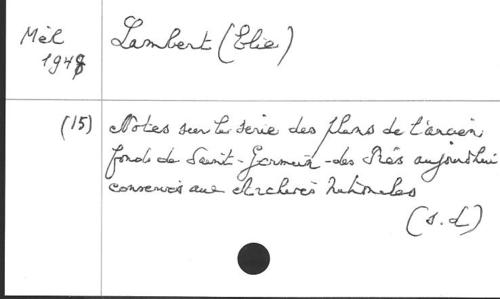 Mél Lambert (Elie)
1948
(15) Notes sur la série des plans de l'ancien
fonds de Saint-Germain-des Prés aujourd'hui
conservés aux Archives Nationales
(s.d.)